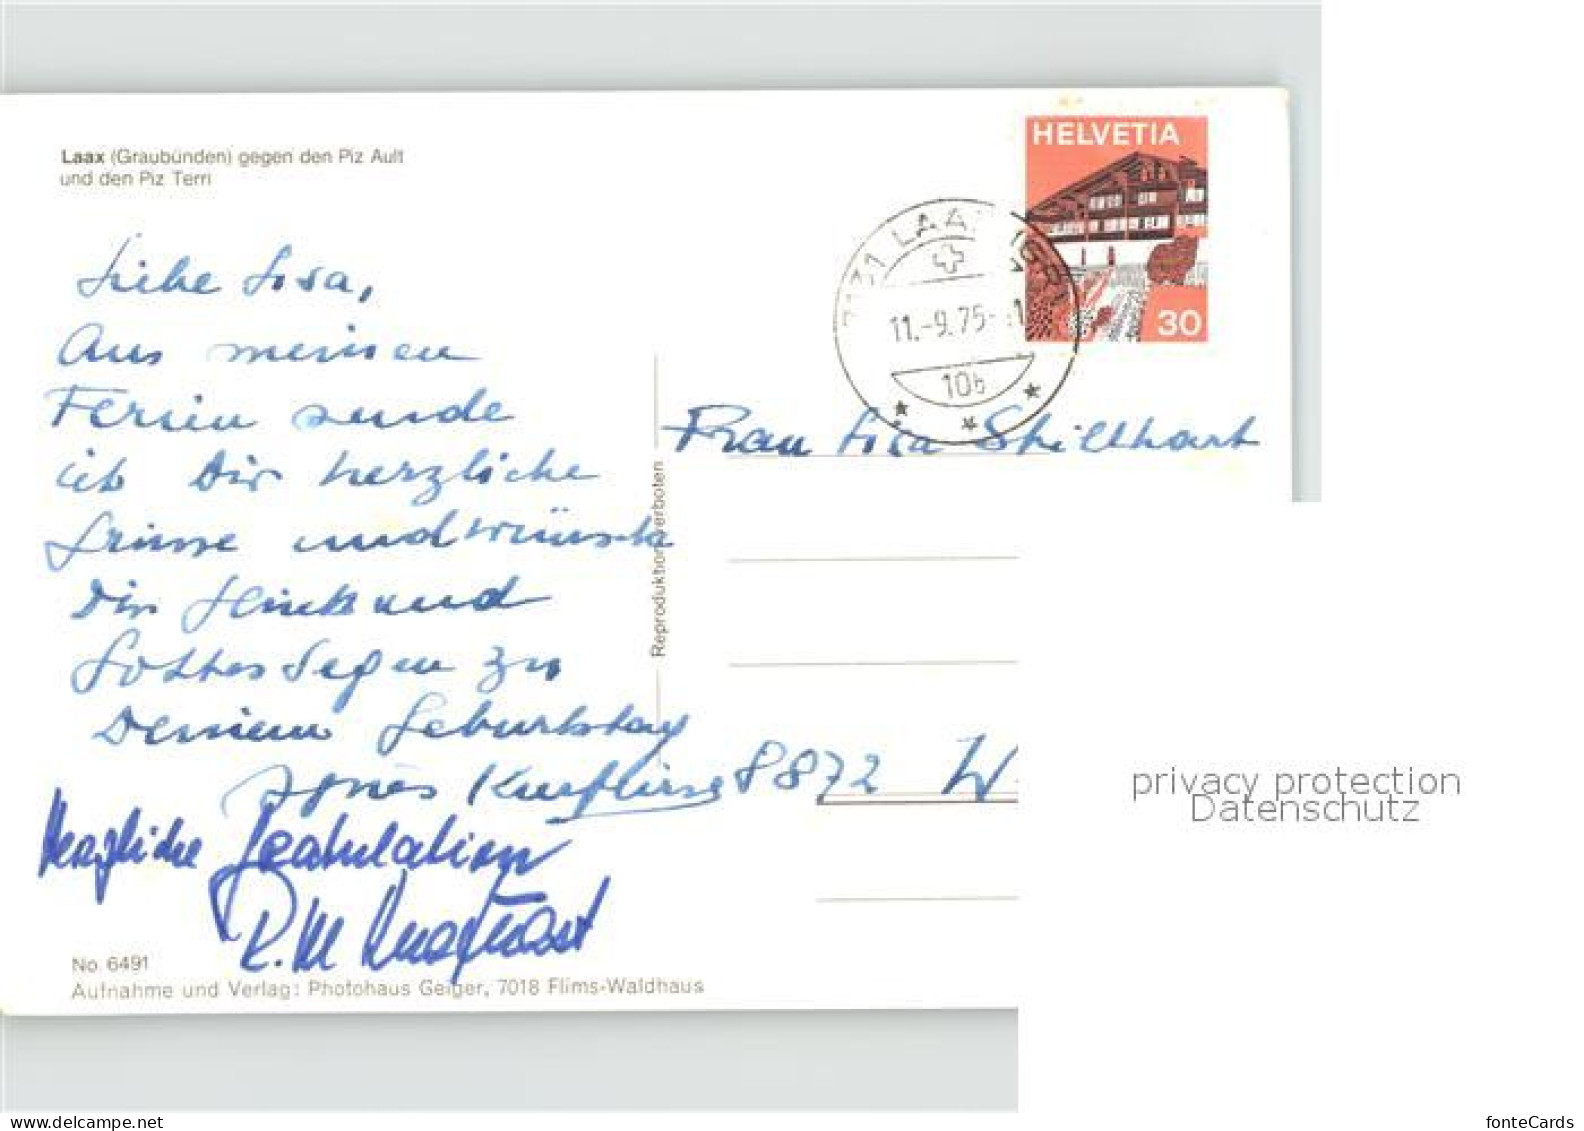 Laax (Graubünden) gegen den Piz Ault
und den Piz Terri
HELVETIA
30
7131 LAAX (GR)
11.-9.75-
10b
Liebe Lisa,
Aus meinen
Ferien sende
ich Dir herzliche
Grüsse und wünsche
Dir Glück und
Gottes Segen zu
Deinem Geburtstag
Agnes
Herzliche Gratulation
R. M.
Frau Lisa Stillhart
8872 W
Reproduktion verboten
No. 6491
Aufnahme und Verlag: Photohaus Geiger, 7018 Flims-Waldhaus
privacy protection
Datenschutz
fonteCards